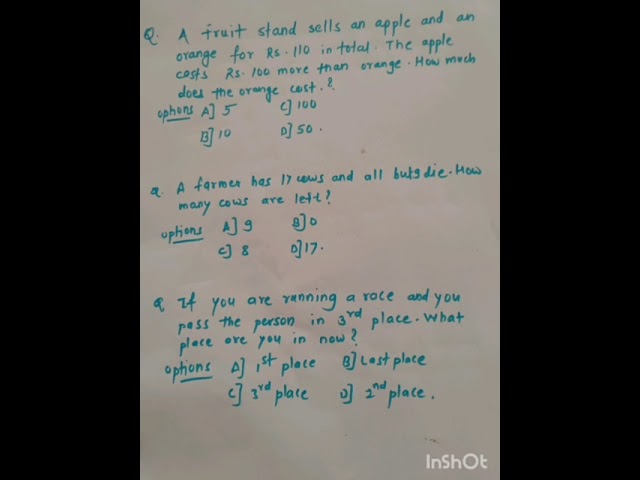 Q. A fruit stand sells an apple and an
orange for Rs. 110 in total. The apple
costs Rs. 100 more than orange. How much
does the orange cost.?
options A] 5 C] 100
B] 10 D] 50.
Q. A farmer has 17 cows and all but 9 die. How
many cows are left?
options A] 9 B] 0
C] 8 D] 17.
Q If you are running a race and you
pass the person in 3rd place. What
place are you in now?
options A] 1st place B] Last place
C] 3rd place D] 2nd place.
InShOt